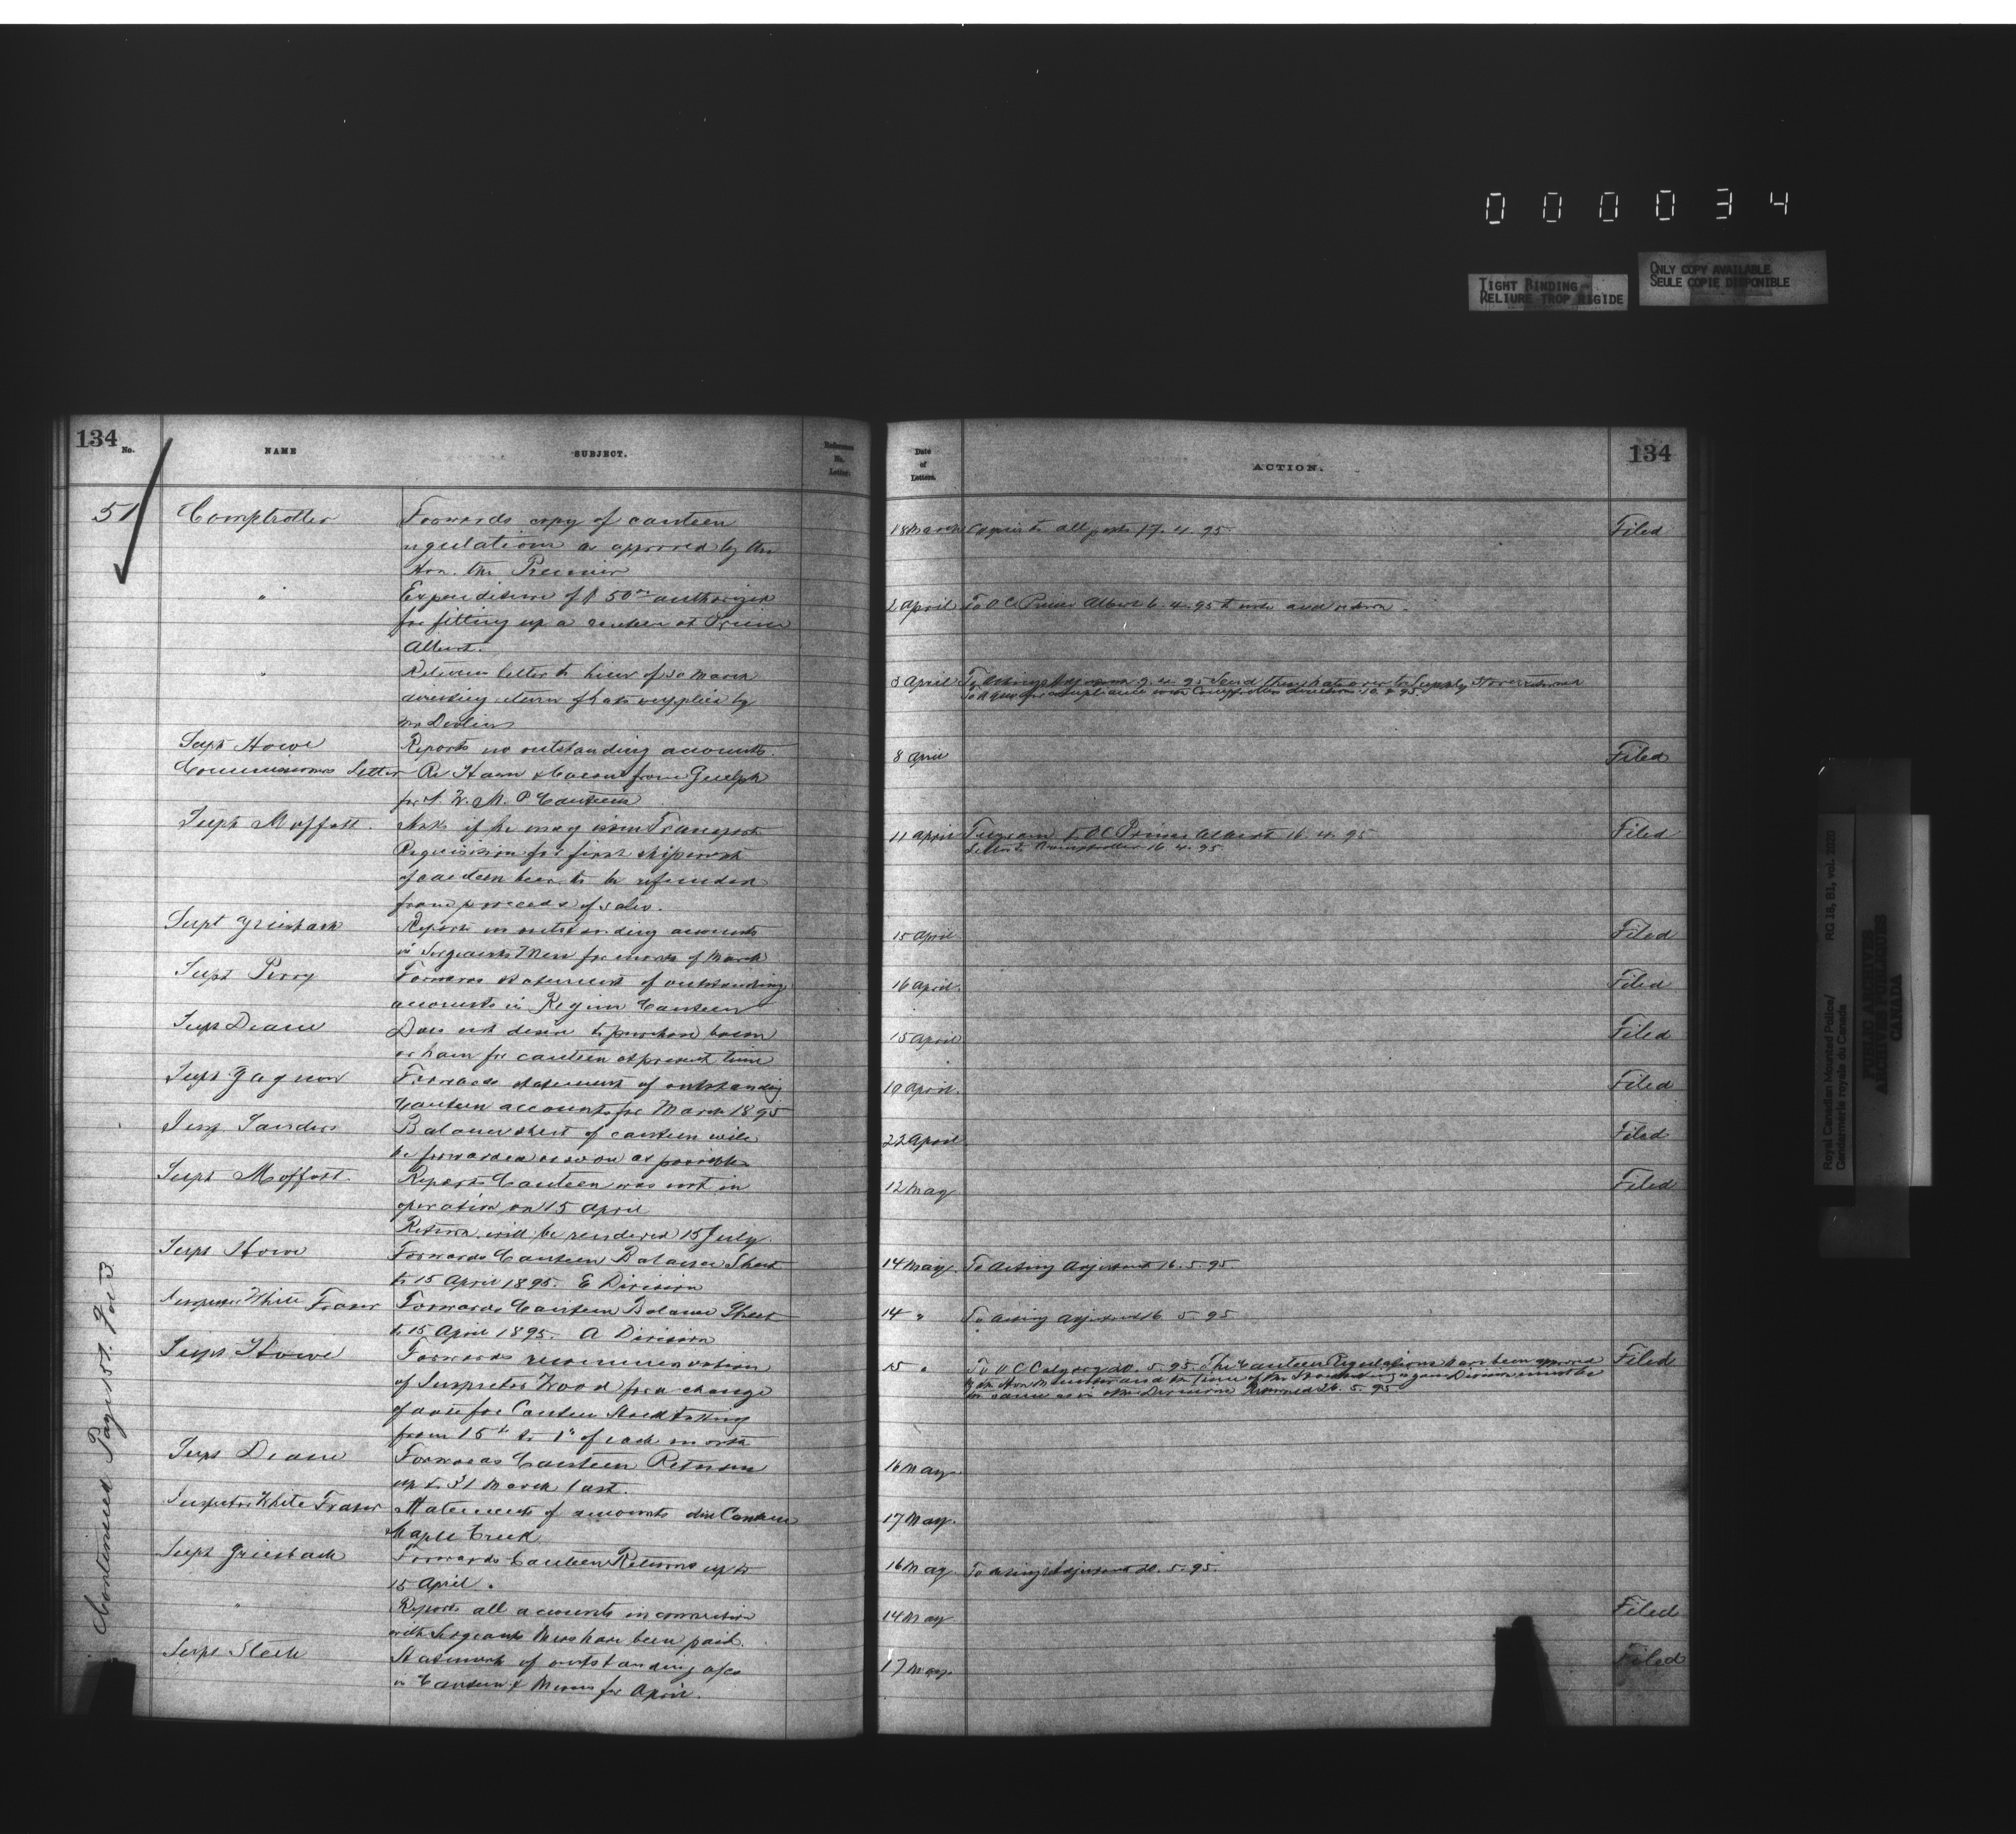 000034
TIGHT BINDING
RELIURE TROP RIGIDE
ONLY COPY AVAILABLE
SEULE COPIE DISPONIBLE
134
No.
NAME
SUBJECT.
Reference
No.
Letter.
51
Comptroller
Forwards copy of canteen
regulations as approved by the
Hon. the Premier
"
Expenditure of $50 authorized
for fitting up a canteen at Prince
Albert.
"
Returns letter to him of 30 March
directing return of hats supplied by
Mr Devlin
Supt Howe
Reports no outstanding accounts.
Commissioners Letter
Re Ham & Bacon from Guelph
for N. W. M. P Canteens
Supt Moffatt.
Asks if he may issue Transport
Requisition for first shipment
of canteen beer to be refunded
from proceeds of sales.
Supt Griesbach
Reports on outstanding accounts
in Sergeants Mess for month of March
Supt Perry
Forwards statement of outstanding
accounts in Regina Canteen
Supt Deane
Does not desire to purchase bacon
or ham for canteen at present time
Supt Gagnon
Forwards statement of outstanding
Canteen accounts for March 1895
Insp Sanders
Balance sheet of canteen will
be forwarded as soon as possible
Supt Moffatt.
Reports Canteen was not in
operation on 15 April
Return will be rendered 15 July.
Supt Howe
Forwards Canteen Balance Sheet
to 15 April 1895. E Division
Inspector White Fraser
Forwards Canteen Balance Sheet
to 15 April 1895. A Division
Supt Howe
Forwards recommendation
of Inspector Wood for a change
of date for Canteen Stocktaking
from 15th to 1st of each month
Supt Deane
Forwards Canteen Return
up to 31 March last.
Inspector White Fraser
Statement of amounts due Canteen
Maple Creek
Supt Griesbach
Forwards Canteen Returns up to
15 April.
"
Reports all accounts in connection
with Sergeants Mess have been paid.
Supt Steele
Statement of outstanding a/cs
in Canteen & Messes for April.
Continued Page 157. Vol 3
Date
of
Letters.
ACTION.
134
18 March Copies to all posts 17. 4. 95.
Filed
2 April To O C Prince Albert 6. 4. 95 to note and return.
3 April To Acting Adjutant 9. 4. 95 Send these hats over to Supply Store
for compliance with Comptrollers directions 10. 4. 95.
8 April
Filed
11 April Telegram to O.C. Prince Albert 16. 4. 95
Letter to Comptroller 16. 4. 95
Filed
15 April
Filed
16 April.
Filed
15 April
Filed
10 April.
Filed
22 April
Filed
12 May
Filed
14 May. To Acting Adjutant 16. 5. 95
14 " To Acting Adjutant 16. 5 95
15 " To O C Calgary 20. 5. 95. The Canteen Regulations have been approved
by the Hon. the Premier and the time of the Stocktaking in your Division must be
the same as in other Divisions Returned 26. 5. 95.
Filed
16 May
17 May.
16 May To Acting Adjutant 20. 5. 95.
14 May
Filed
17 May.
Filed
Royal Canadian Mounted Police/
Gendarmerie royale du Canada
RG 18, B1, vol. 2020
PUBLIC ARCHIVES
ARCHIVES PUBLIQUES
CANADA